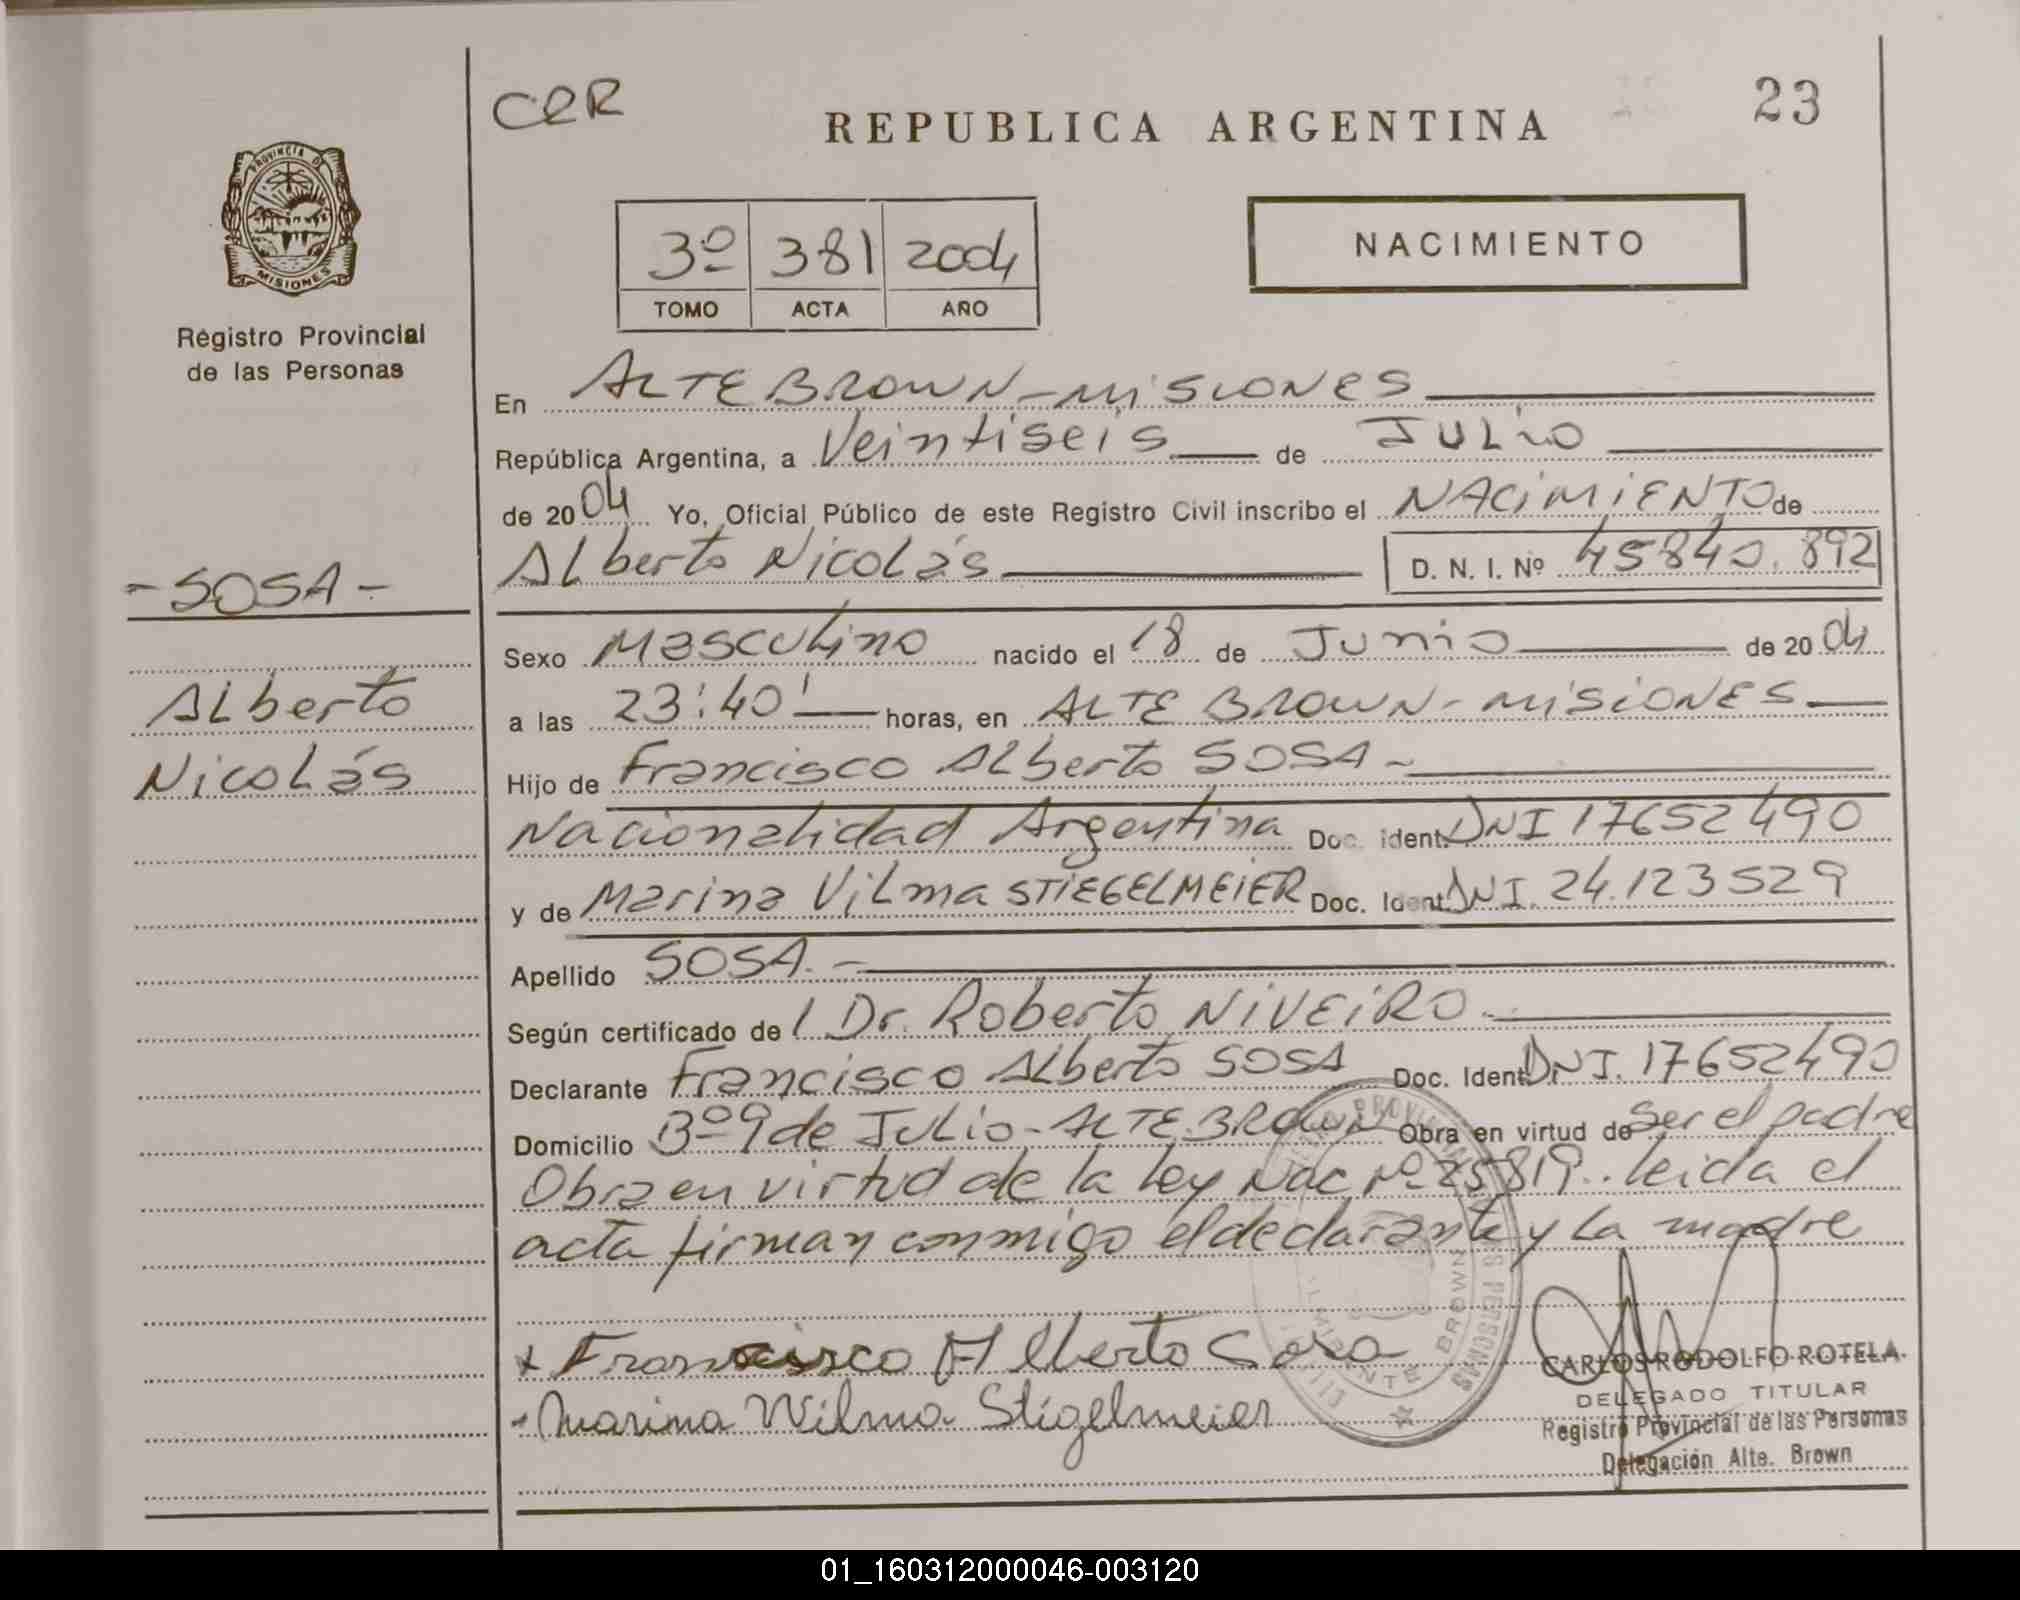 CER
REPUBLICA ARGENTINA
23
PROVINCIA DE
MISIONES
Registro Provincial
de las Personas
3º 381 2004
TOMO ACTA AÑO
NACIMIENTO
En ALTE BROWN - MISIONES
República Argentina, a Veintiseis de JULIO
de 2004 Yo, Oficial Público de este Registro Civil inscribo el NACIMIENTO de
Alberto Nicolás D. N. I. Nº 45840.892
- SOSA -
Alberto
Nicolás
Sexo Masculino nacido el 18 de Junio de 2004
a las 23:40' horas, en ALTE BROWN - MISIONES
Hijo de Francisco Alberto SOSA -
Nacionalidad Argentina Doc. Ident. DNI 17652490
y de Marina Vilma STIEGELMEIER Doc. Ident. DNI. 24.123529
Apellido SOSA. -
Según certificado de l Dr. Roberto NIVEIRO
Declarante Francisco Alberto SOSA Doc. Ident. DNI. 17652490
Domicilio Bº 9 de Julio - ALTE. BROWN Obra en virtud de ser el padre
Obra en virtud de la Ley Nac Nº 25819.. leida el
acta firman conmigo el declarante y la madre
Francisco Alberto Sosa
Marina Wilma Stigelmeier
CARLOS RODOLFO ROTELA
DELEGADO TITULAR
Registro Provincial de las Personas
Delegación Alte. Brown
01_160312000046-003120